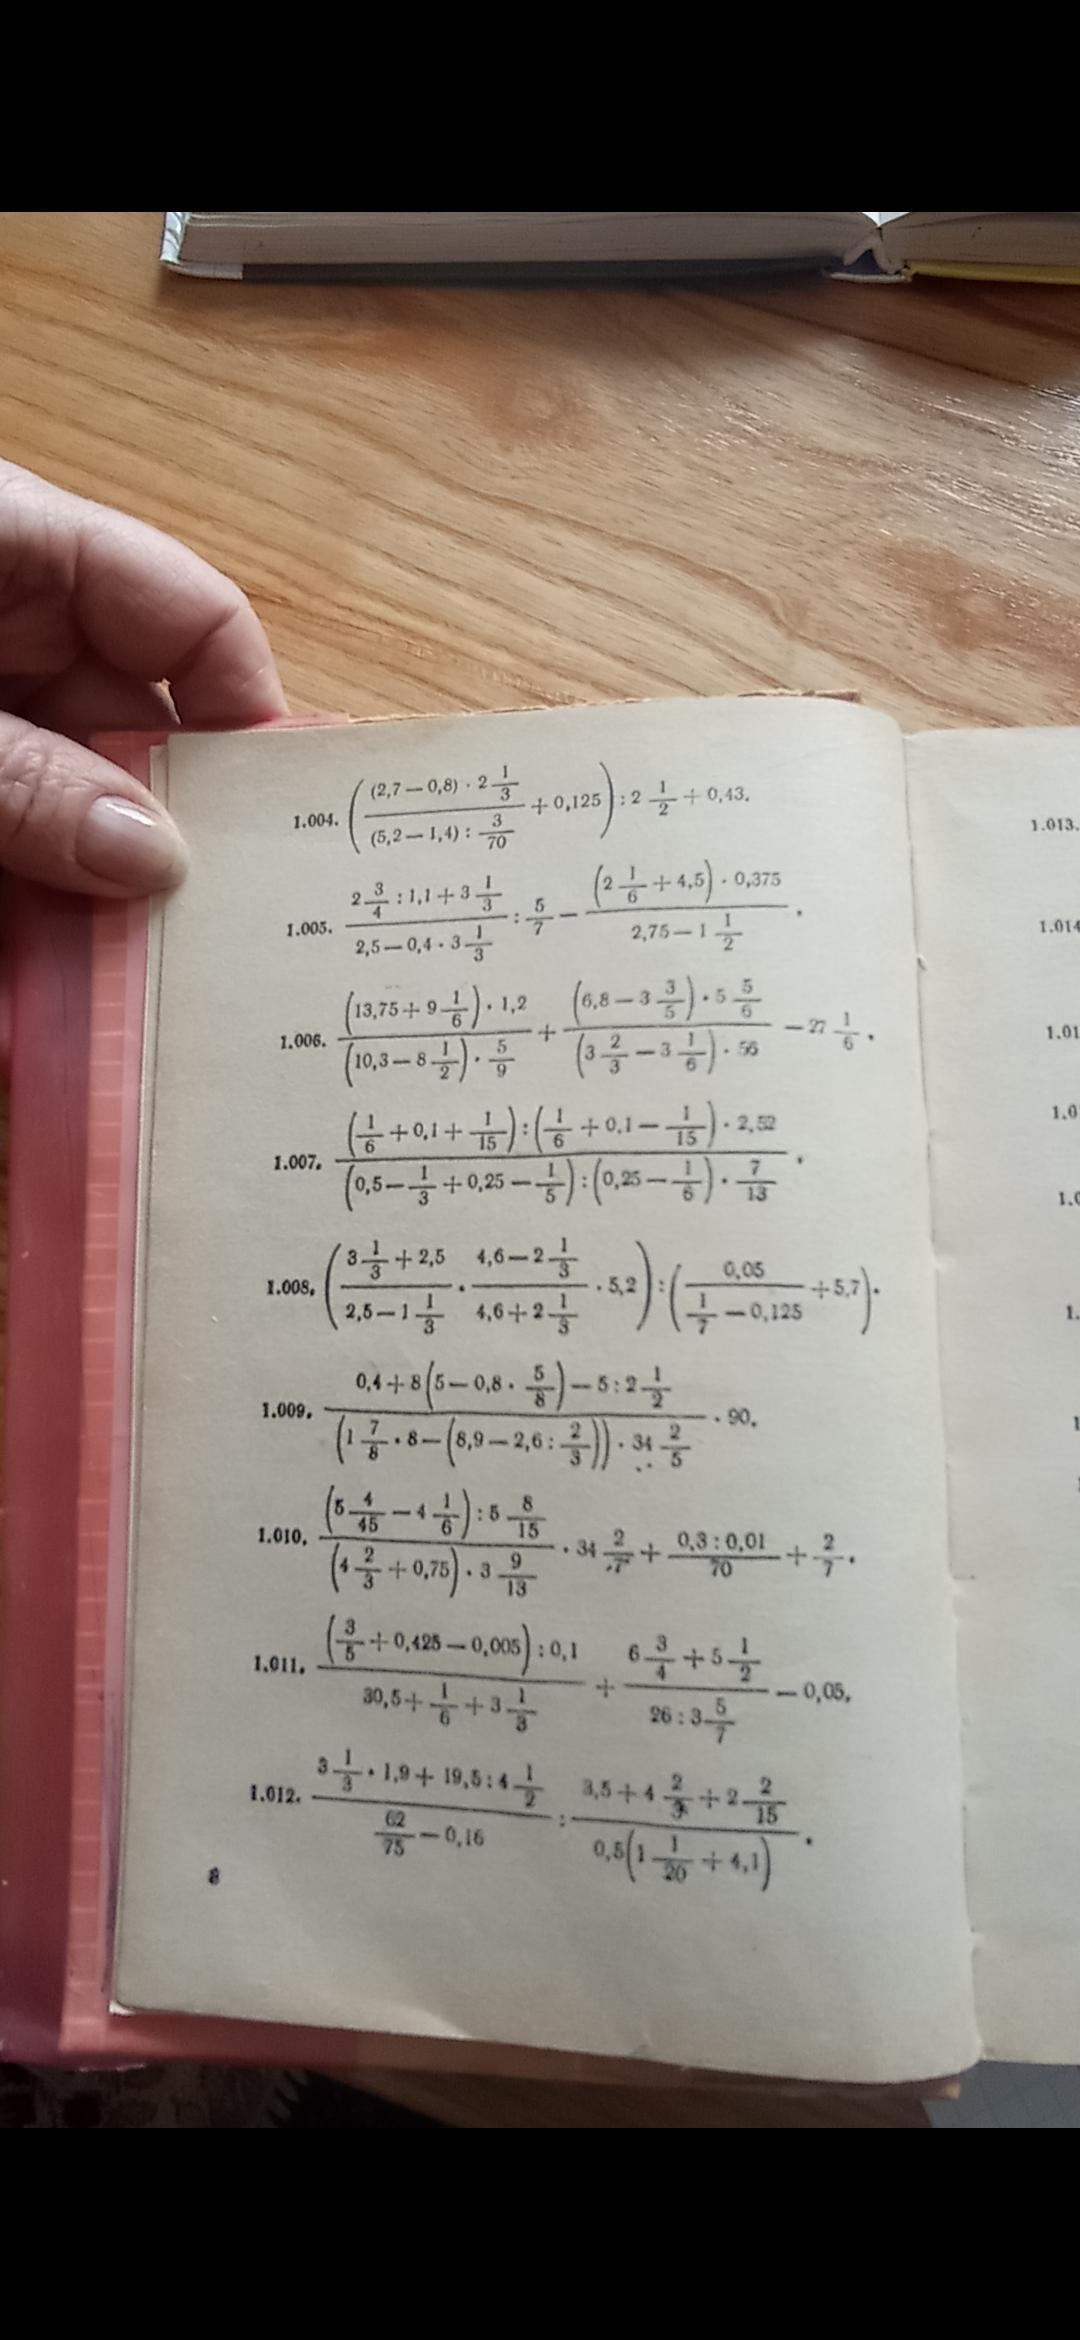 1.004. (((2,7 − 0,8) · 2 1/3) / ((5,2 − 1,4) : 3/70) + 0,125) : 2 1/2 + 0,43.
1.005. (2 3/4 : 1,1 + 3 1/3) / (2,5 − 0,4 · 3 1/3) : 5/7 − ((2 1/6 + 4,5) · 0,375) / (2,75 − 1 1/2).
1.006. ((13,75 + 9 1/6) · 1,2) / ((10,3 − 8 1/2) · 5/9) + ((6,8 − 3 3/5) · 5 5/6) / ((3 2/3 − 3 1/6) · 56) − 27 1/6.
1.007. ((1/6 + 0,1 + 1/15) : (1/6 + 0,1 − 1/15) · 2,52) / ((0,5 − 1/3 + 0,25 − 1/5) : (0,25 − 1/6) · 7/13).
1.008. ((3 1/3 + 2,5) / (2,5 − 1 1/3) · (4,6 − 2 1/3) / (4,6 + 2 1/3) · 5,2) : (0,05 / (1/7 − 0,125) + 5,7).
1.009. (0,4 + 8 (5 − 0,8 · 5/8) − 5 : 2 1/2) / ((1 7/8 · 8 − (8,9 − 2,6 : 2/3)) · 34 2/5) · 90.
1.010. ((5 4/45 − 4 1/6) : 5 8/15) / ((4 2/3 + 0,75) · 3 9/13) · 34 2/7 + (0,3 : 0,01) / 70 + 2/7.
1.011. ((3/5 + 0,425 − 0,005) : 0,1) / (30,5 + 1/6 + 3 1/3) + (6 3/4 + 5 1/2) / (26 : 3 5/7) − 0,05.
1.012. (3 1/3 · 1,9 + 19,5 : 4 1/2) / (62/75 − 0,16) : (3,5 + 4 2/3 + 2 2/15) / (0,5 (1 1/20 + 4,1)).
8
1.013.
1.014